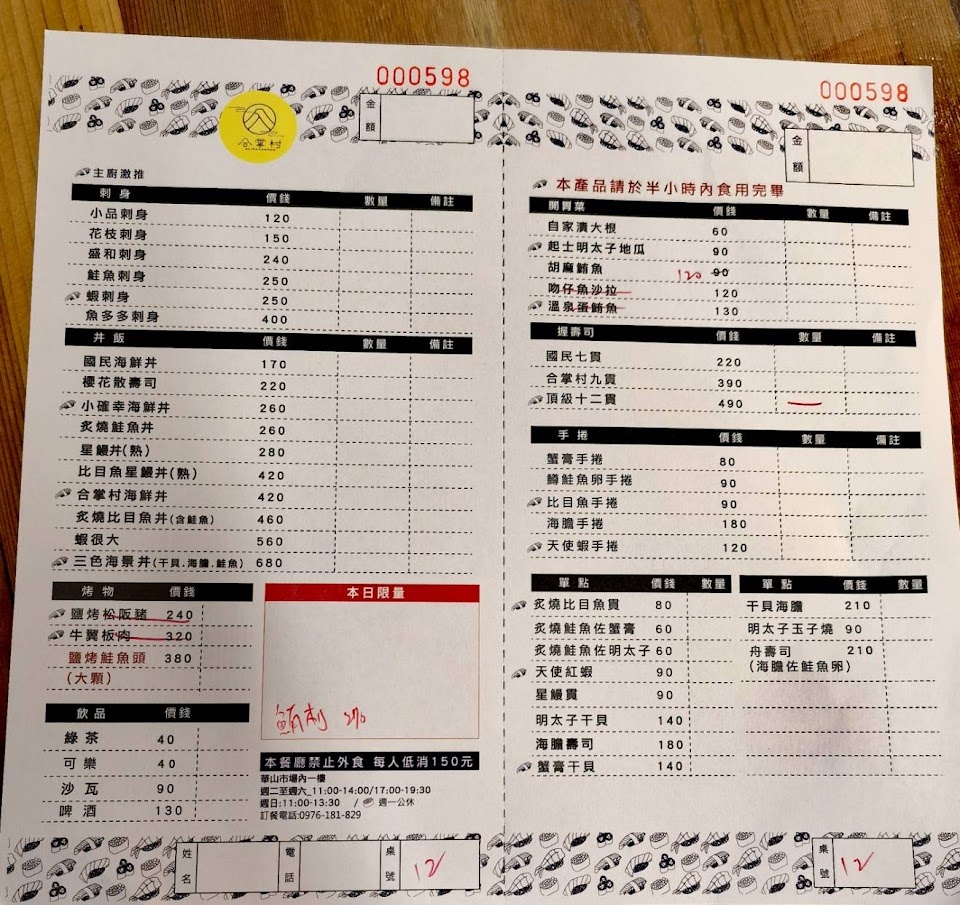 000598
合掌村
金額
主廚激推
刺身 價錢 數量 備註
小品刺身 120
花枝刺身 150
盛和刺身 240
鮭魚刺身 250
蝦刺身 250
魚多多刺身 400
丼飯 價錢 數量 備註
國民海鮮丼 170
櫻花散壽司 220
小確幸海鮮丼 260
炙燒鮭魚丼 260
星鰻丼(熟) 280
比目魚星鰻丼(熟) 420
合掌村海鮮丼 420
炙燒比目魚丼(含鮭魚) 460
蝦很大 560
三色海景丼(干貝.海膽.鮭魚) 680
烤物 價錢
鹽烤松阪豬 240
牛翼板肉 320
鹽烤鮭魚頭 380
(大顆)
飲品 價錢
綠茶 40
可樂 40
沙瓦 90
啤酒 130
本日限量
鮪刺 270
本餐廳禁止外食 每人低消150元
華山市場內一樓
週二至週六_11:00-14:00/17:00-19:30
週日:11:00-13:30 / 週一公休
訂餐電話:0976-181-829
姓名 電話 桌號 12
000598
金額
本產品請於半小時內食用完畢
開胃菜 價錢 數量 備註
自家漬大根 60
起士明太子地瓜 90
胡麻鮪魚 120 90
吻仔魚沙拉 120
溫泉蛋鮪魚 130
握壽司 價錢 數量 備註
國民七貫 220
合掌村九貫 390
頂級十二貫 490 一
手捲 價錢 數量 備註
蟹膏手捲 80
鱒鮭魚卵手捲 90
比目魚手捲 90
海膽手捲 180
天使蝦手捲 120
單點 價錢 數量
炙燒比目魚貫 80
炙燒鮭魚佐蟹膏 60
炙燒鮭魚佐明太子 60
天使紅蝦 90
星鰻貫 90
明太子干貝 140
海膽壽司 180
蟹膏干貝 140
單點 價錢 數量
干貝海膽 210
明太子玉子燒 90
舟壽司 210
(海膽佐鮭魚卵)
桌號 12